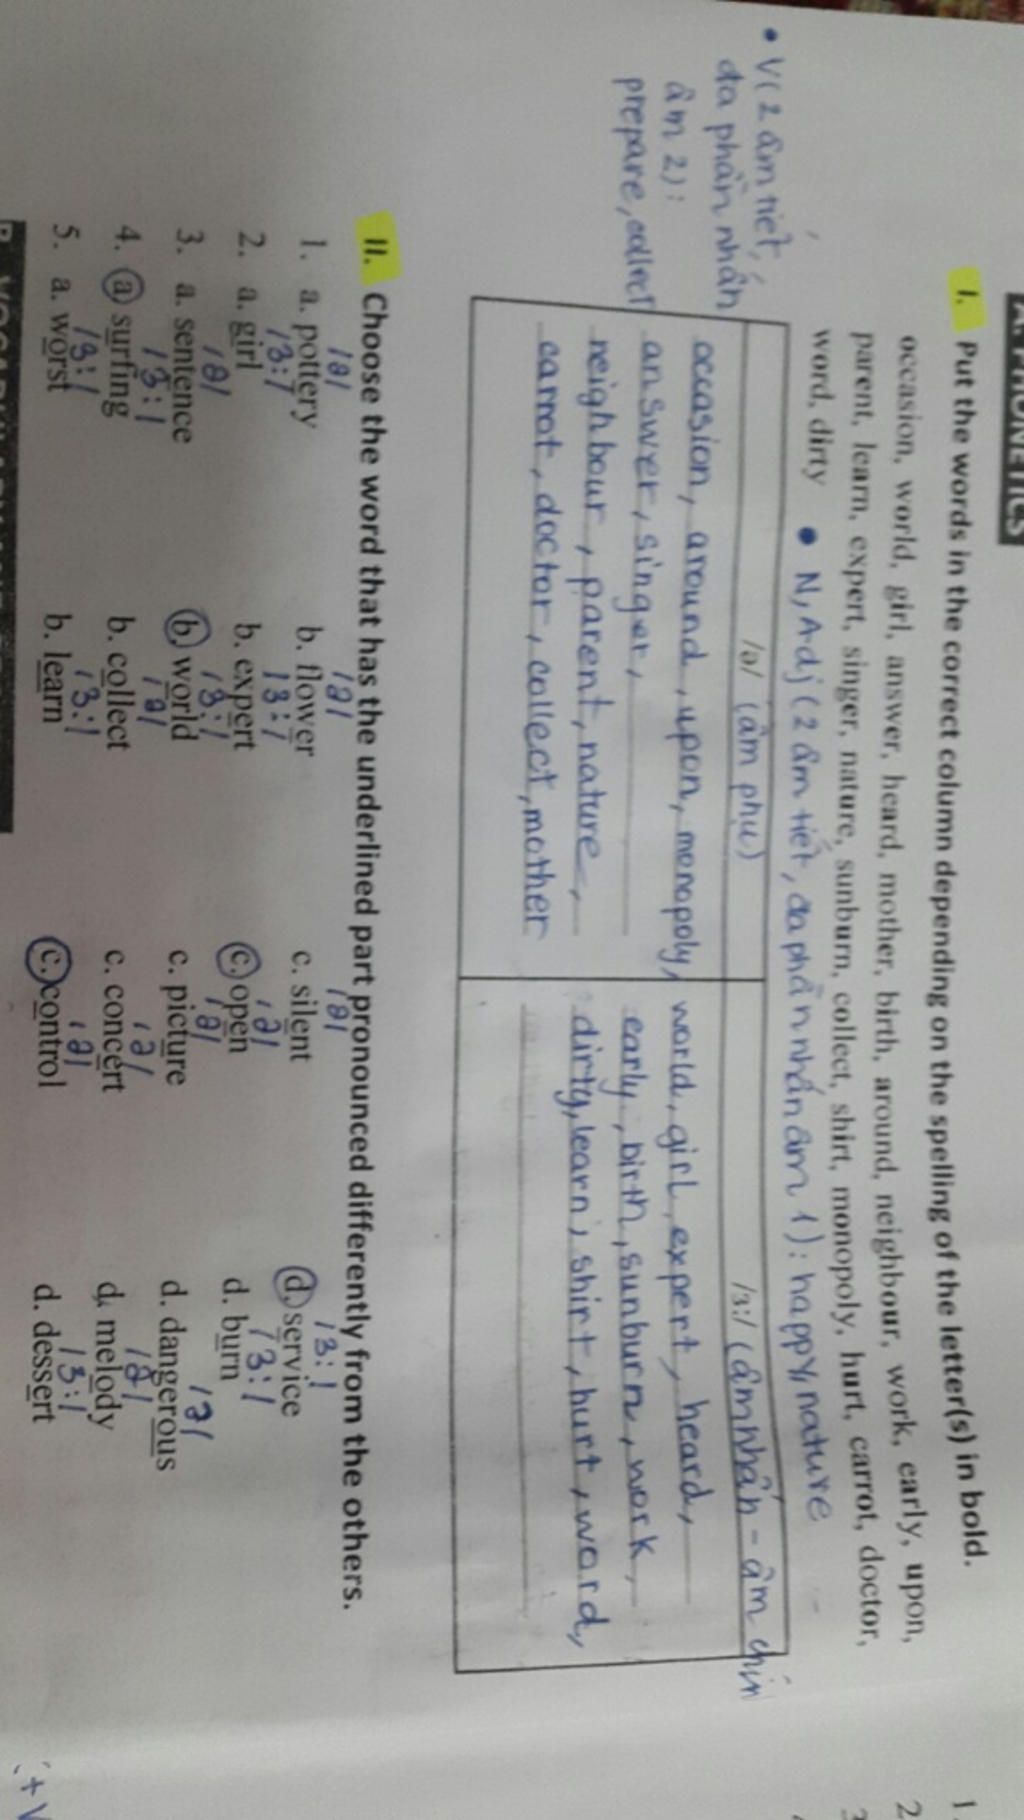 A. PHONETICS
I. Put the words in the correct column depending on the spelling of the letter(s) in bold.
occasion, world, girl, answer, heard, mother, birth, around, neighbour, work, early, upon,
parent, learn, expert, singer, nature, sunburn, collect, shirt, monopoly, hurt, carrot, doctor,
word, dirty
• N, Adj (2 âm tiết, đa phần nhấn âm 1): happy, nature
• V (2 âm tiết,
đa phần nhấn
âm 2):
prepare, collect
/ə/ (âm phụ)
occasion, around, upon, monopoly,
answer, singer,
neighbour, parent, nature,
carrot, doctor, collect, mother
/ɜ:/ (âm nhấn - âm chín
world, girl, expert, heard,
early, birth, sunburn, work,
dirty, learn, shirt, hurt, word,
II. Choose the word that has the underlined part pronounced differently from the others.
/ə/ /ə/ /ə/ /ɜ:/
1. a. pottery b. flower c. silent d. service
/ɜ:/ /ɜ:/ /ə/ /ɜ:/
2. a. girl b. expert c. open d. burn
/ə/ /ɜ:/ /ə/ /ə/
3. a. sentence b. world c. picture d. dangerous
/ɜ:/ /ə/ /ə/ /ə/
4. a. surfing b. collect c. concert d. melody
/ɜ:/ /ɜ:/ /ə/ /ɜ:/
5. a. worst b. learn c. control d. dessert
1.
2.
3